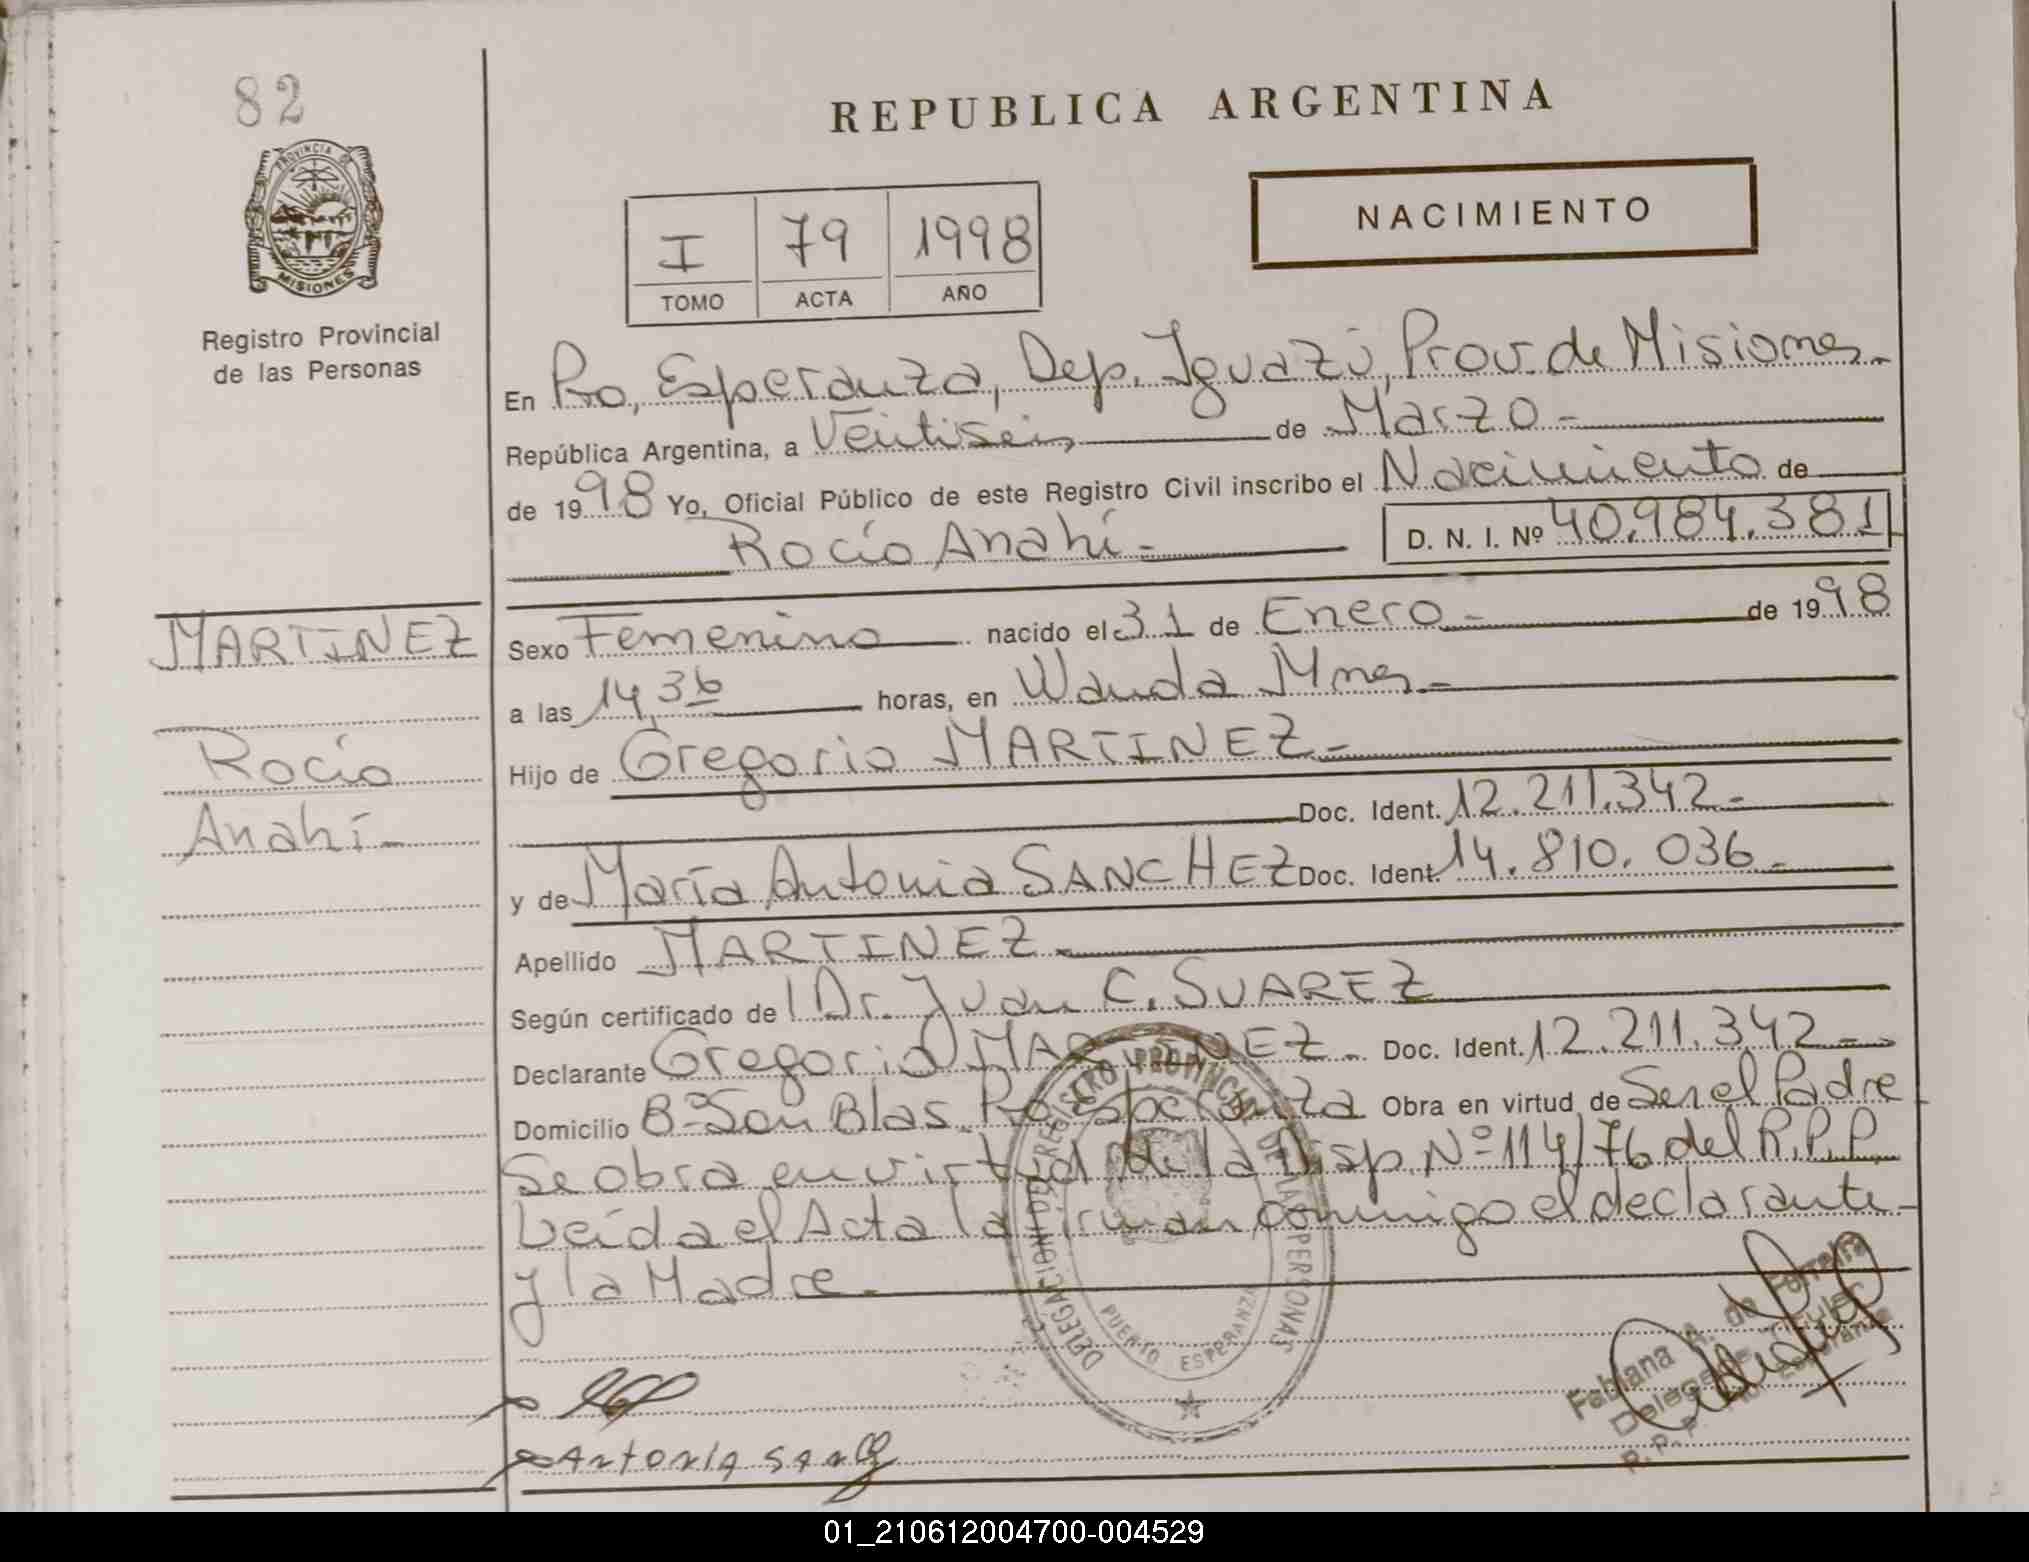 82
REPUBLICA ARGENTINA
PROVINCIA DE
MISIONES
Registro Provincial
de las Personas
NACIMIENTO
I 79 1998
TOMO ACTA AÑO
En Pto, Esperanza, Dep. Iguazú, Prov. de Misiones.-
República Argentina, a Veintiseis de Marzo.-
de 1998 Yo, Oficial Público de este Registro Civil inscribo el Nacimiento de
Rocío Anahí.- D. N. I. Nº 40.984.381
MARTINEZ
Rocío
Anahí.-
Sexo Femenino nacido el 31 de Enero.- de 1998
a las 14,36 horas, en Wanda Mnes.-
Hijo de Gregorio MARTINEZ.-
Doc. Ident. 12.211.342.-
y de María Antonia SANCHEZ Doc. Ident. 14.810.036.-
Apellido MARTINEZ.-
Según certificado de Dr. Juan C. SUAREZ
Declarante Gregorio MARTINEZ.- Doc. Ident. 12.211.342.-
Domicilio Bº San Blas. Pto Esperanza Obra en virtud de Ser el Padre
Se obra en virtud de la Disp. Nº 114/76 del R.P.P.
Leída el Acta la firman conmigo el declarante
y la Madre.-
DELEGACION DEL REGISTRO PROVINCIAL DE LAS PERSONAS
PUERTO ESPERANZA
Fabiana A. de Ferreira
Antonia
R. P. P.
01_210612004700-004529